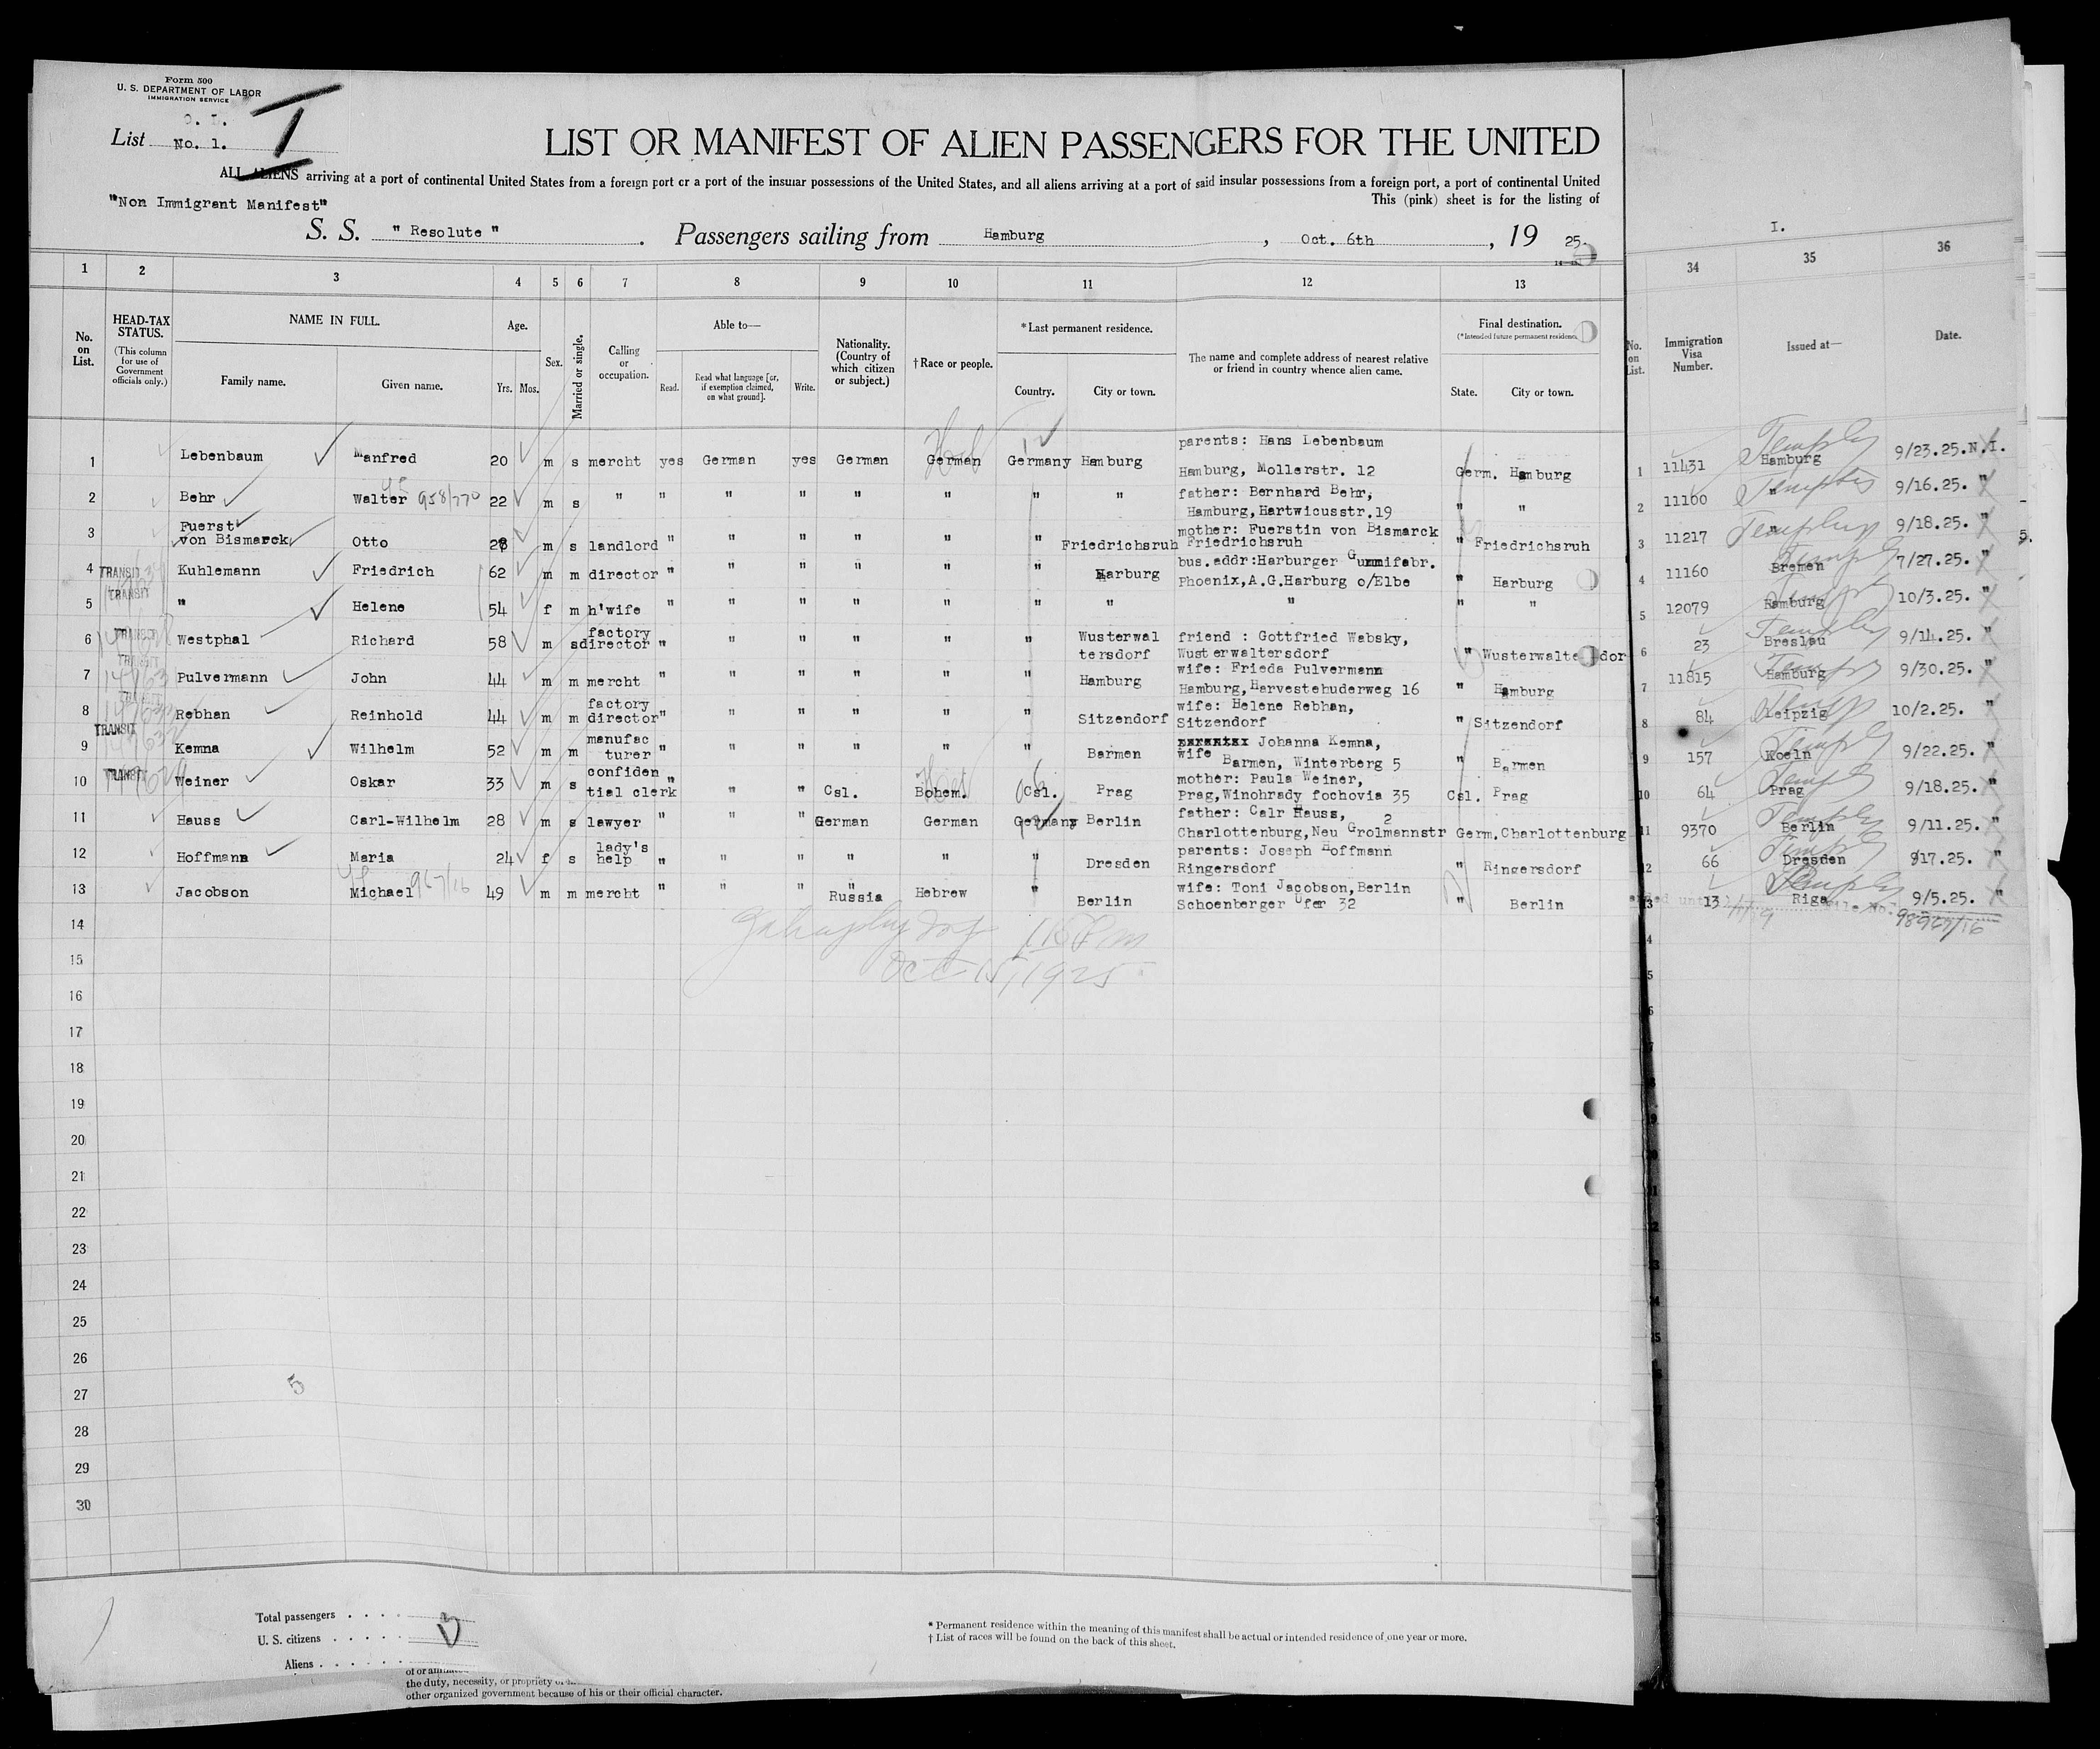 Form 500
U. S. DEPARTMENT OF LABOR
IMMIGRATION SERVICE
List No. 1.
I
LIST OR MANIFEST OF ALIEN PASSENGERS FOR THE UNITED
ALL ALIENS arriving at a port of continental United States from a foreign port or a port of the insular possessions of the United States, and all aliens arriving at a port of said insular possessions from a foreign port, a port of continental United
"Non Immigrant Manifest" This (pink) sheet is for the listing of
S. S. " Resolute " . Passengers sailing from Hamburg , Oct. 6th , 19 25.
I.
1 2 3 4 5 6 7 8 9 10 11 12 13 34 35 36
No. on List.
HEAD-TAX STATUS.
(This column for use of Government officials only.)
NAME IN FULL.
Family name. Given name.
Age.
Yrs. Mos.
Sex.
Married or single.
Calling or occupation.
Able to—
Read. Read what language [or, if exemption claimed, on what ground]. Write.
Nationality. (Country of which citizen or subject.)
† Race or people.
* Last permanent residence.
Country. City or town.
The name and complete address of nearest relative or friend in country whence alien came.
Final destination.
(* Intended future permanent residence.)
State. City or town.
No. on List.
Immigration Visa Number.
Issued at—
Date.
parents: Hans Lebenbaum
1 Lebenbaum Manfred 20 m s mercht yes German yes German German Germany Hamburg Hamburg, Mollerstr. 12 Germ. Hamburg 1 11431 Hamburg 9/23.25.N.I.
2 Behr Walter 958/770 22 m s " " " " " " " " father: Bernhard Behr,
Hamburg, Hartwicusstr.19 " " 2 11100 " 9/16.25. "
3 Fuerst
von Bismarck Otto 28 m s landlord " " " " " " Friedrichsruh mother: Fuerstin von Bismarck
Friedrichsruh " Friedrichsruh 3 11217 " 9/18.25. "
4 TRANSIT Kuhlemann Friedrich 62 m m director " " " " " " Harburg bus.addr:Harburger Gummifabr.
Phoenix,A.G.Harburg o/Elbe " Harburg 4 11160 Bremen 7/27.25. "
5 TRANSIT " Helene 54 f m h'wife " " " " " " " " " " 5 12079 Hamburg 10/3.25. "
6 TRANSIT Westphal Richard 58 m s factory
director " " " " " " Wusterwal
tersdorf friend : Gottfried Websky,
Wusterwaltersdorf " Wusterwalte dor 6 23 Breslau 9/14.25. "
7 TRANSIT Pulvermann John 44 m m mercht " " " " " " Hamburg wife: Frieda Pulvermann
Hamburg,Harvestehuderweg 16 " Hamburg 7 11815 Hamburg 9/30.25. "
8 TRANSIT Rebhan Reinhold 44 m m factory
director " " " " " " Sitzendorf wife: Helene Rebhan,
Sitzendorf " Sitzendorf 8 84 Leipzig 10/2.25. "
9 TRANSIT Kemna Wilhelm 52 m m manufac
turer " " " " " " Barmen wife Johanna Kemna,
Barmen, Winterberg 5 " Barmen 9 157 Koeln 9/22.25. "
10 TRANSIT Weiner Oskar 33 m s confiden
tial clerk " " " Csl. Bohem. Csl. Prag mother: Paula Weiner,
Prag,Winohrady fochovia 35 Csl. Prag 10 64 Prag 9/18.25. "
11 Hauss Carl-Wilhelm 28 m s lawyer " " " German German Germany Berlin father: Calr Hauss,
Charlottenburg,Neu Grolmannstr 2 Germ. Charlottenburg 11 9370 Berlin 9/11.25. "
12 Hoffmann Maria 24 f s lady's
help " " " " " " Dresden parents: Joseph Hoffmann
Ringersdorf " Ringersdorf 12 66 Dresden 917.25. "
13 Jacobson Michael 967/16 49 m m mercht " " " " Russia Hebrew " Berlin wife: Toni Jacobson,Berlin
Schoenberger Ufer 32 " Berlin 13 13 Riga 9/5.25. "
File No. 98967/16
14
Oct 15, 1925
15
16
17
18
19
20
21
22
23
24
25
26
27
5
28
29
30
Total passengers . . . .
U. S. citizens . . . . .
Aliens . . . . . .
* Permanent residence within the meaning of this manifest shall be actual or intended residence of one year or more.
† List of races will be found on the back of this sheet.
the duty, necessity, or propriety of
other organized government because of his or their official character.